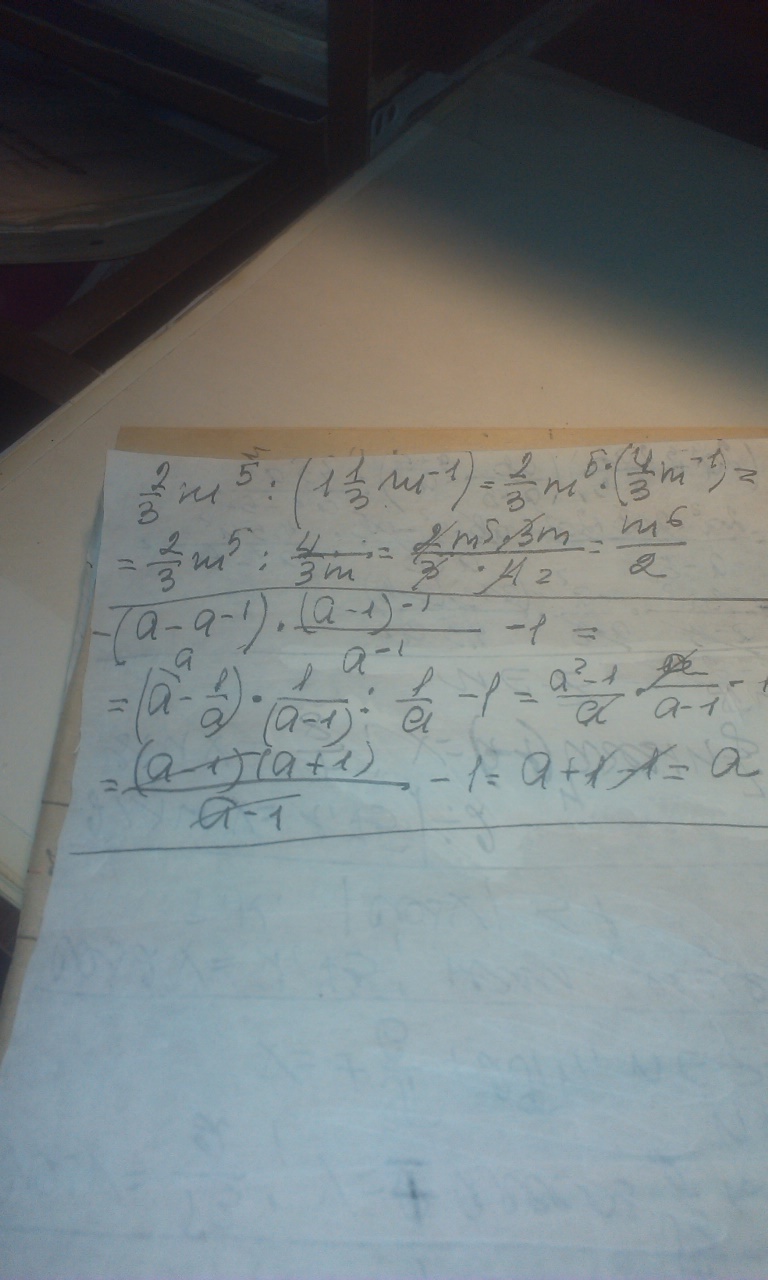 2/3 m⁵ : (1 1/3 m⁻¹) = 2/3 m⁵ : (4/3 m⁻¹) =
= 2/3 m⁵ : 4/3m = 2m⁵·3m/3·4 2 = m⁶/2
(a - a⁻¹) · (a-1)⁻¹/a⁻¹ - 1 =
= (a - 1/a) · 1/(a-1) : 1/a - 1 = a²-1/a · a/a-1 - 1
= (a-1)(a+1)/a-1 - 1 = a+1-1 = a